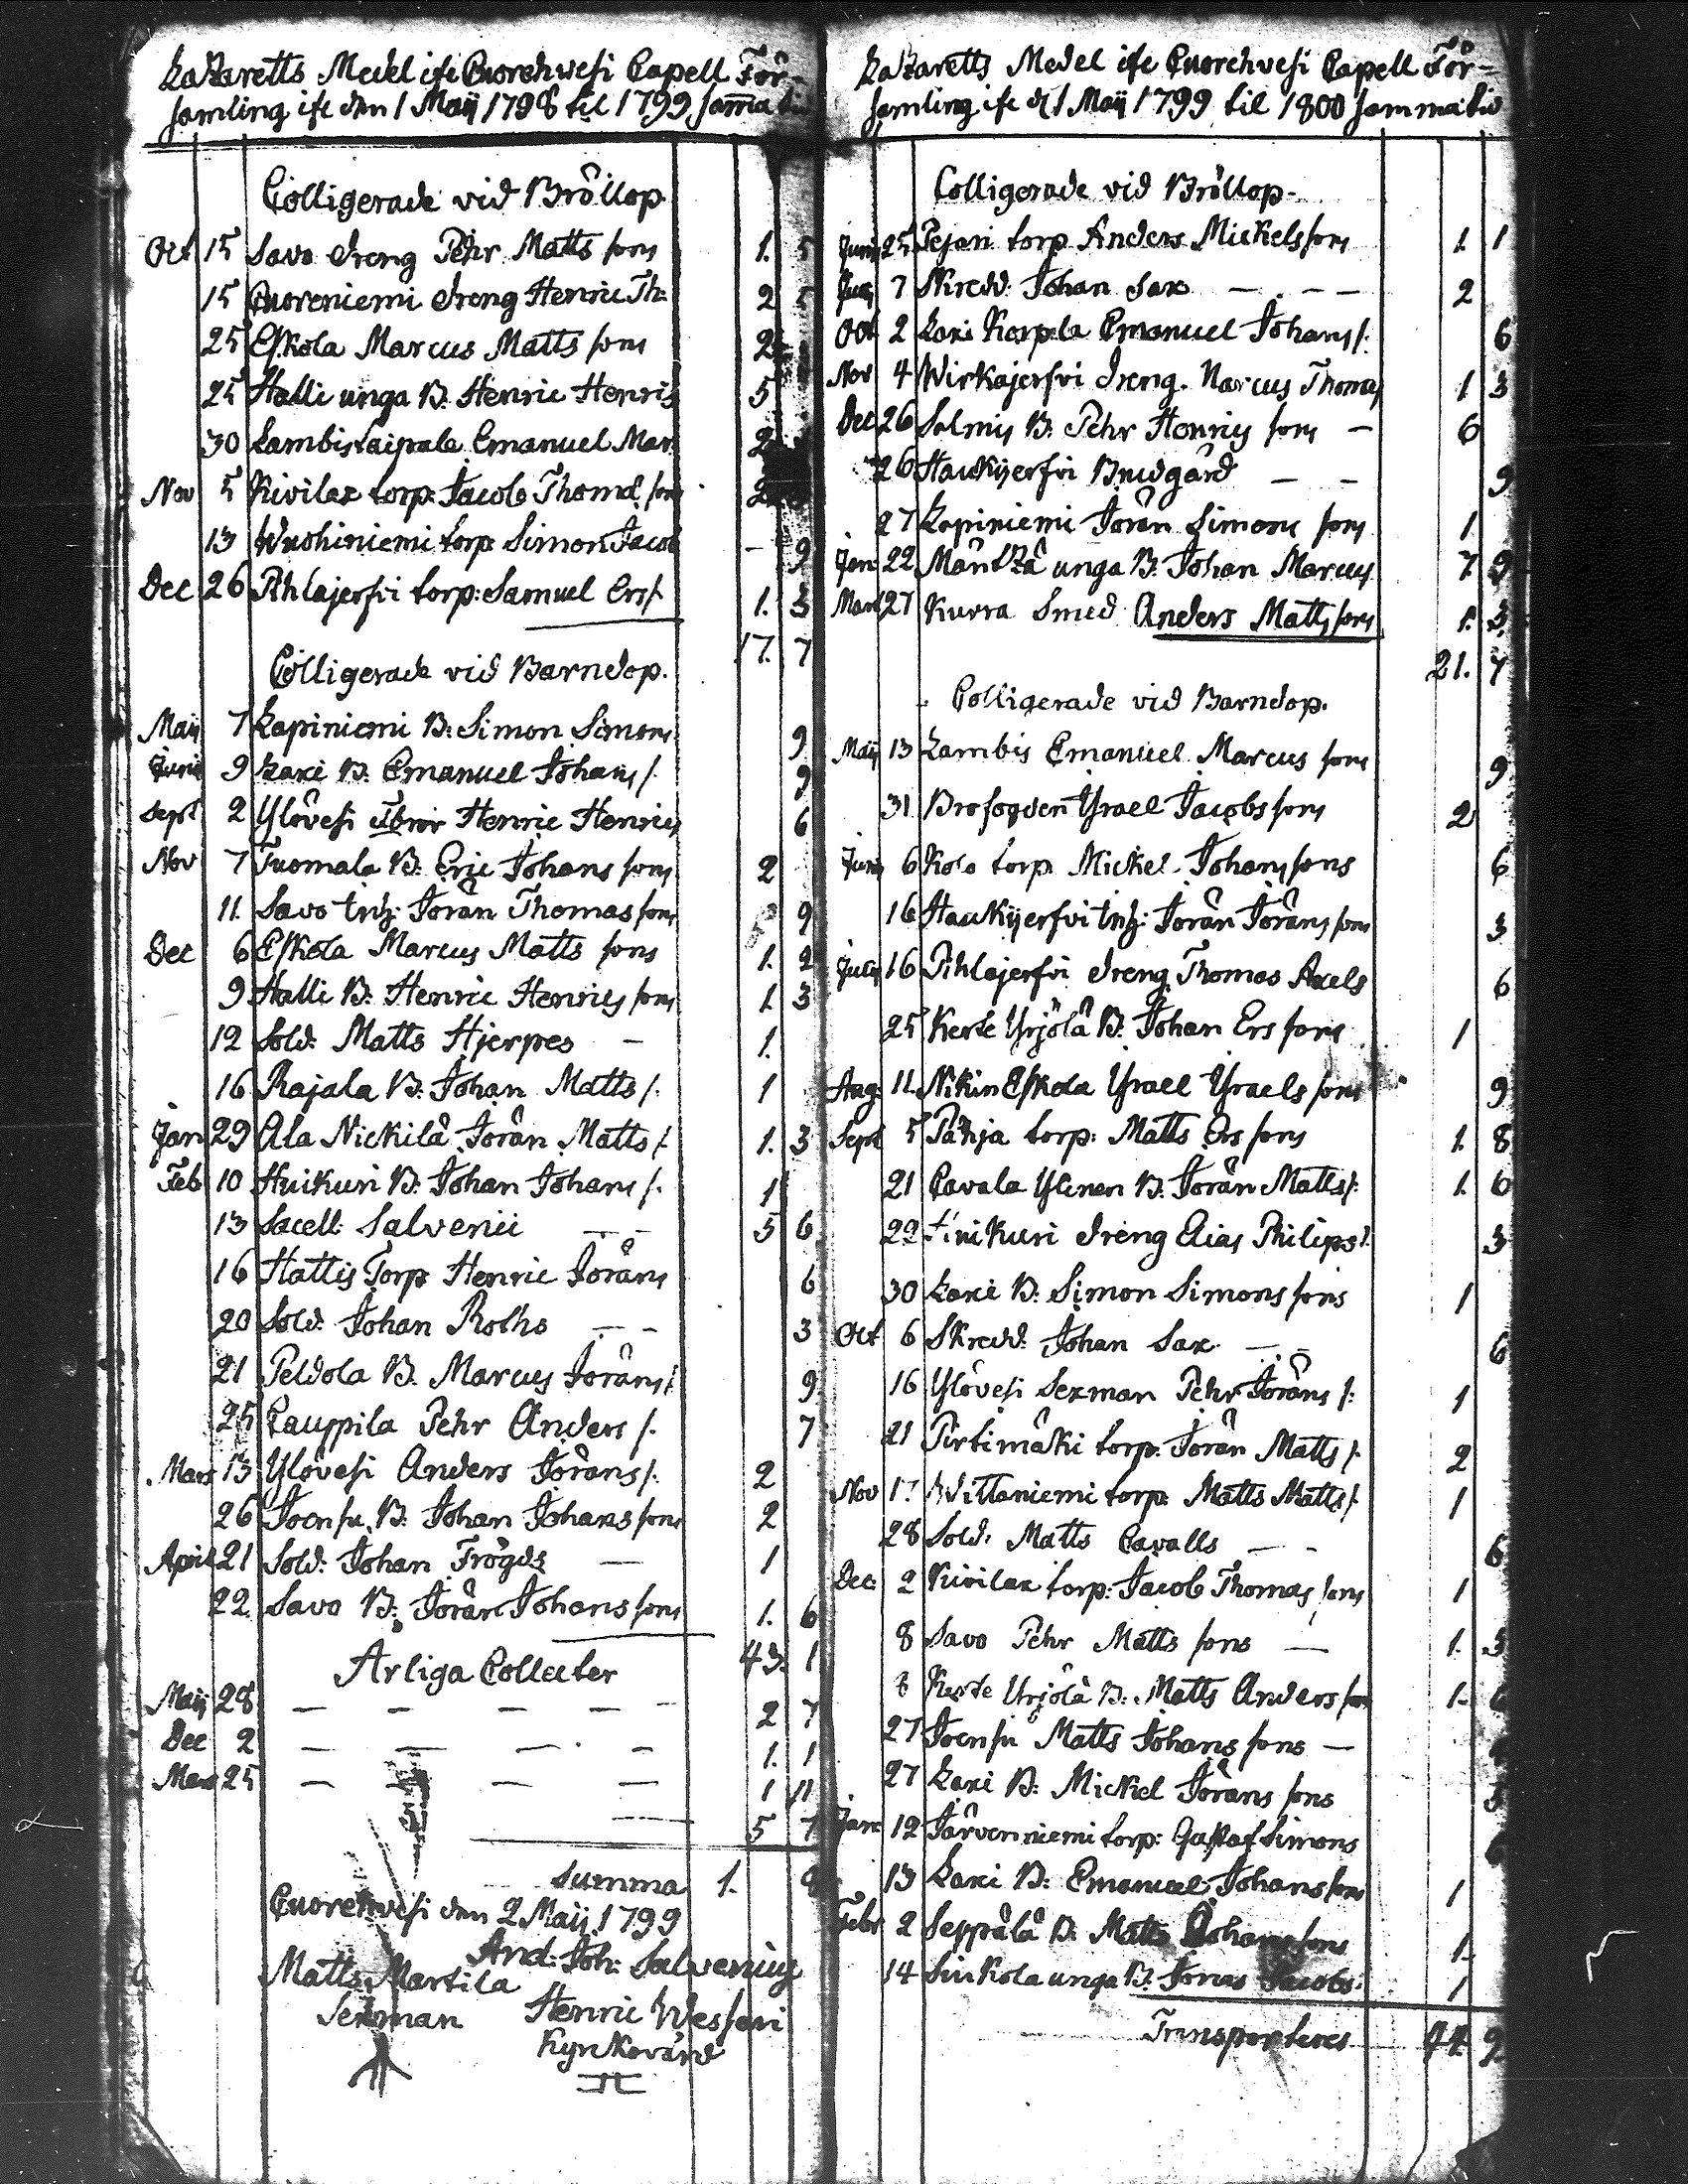 Lazaretts Medel ifr Cuorehwesi Capell För-
samling ifr den 1 Maij 1798 til 1799 samma tid
Colligerade vid Bröllop.
Oct 15 Savo dreng Pehr Matts sons 1. 5
15 Cuoreniemi dreng Henric Th: 2 5
25 Eskola Marcus Matts sons 2
25 Halli unga B. Henric Henrics 5
30 Lambis Laipala Emanuel Mar 2
Nov 5 Kivilax torp: Jacob Thomæ sons 2
13 Wuohiniemi torp: Simon Jacob - 9
Dec 26 Pihlajerfvi torp: Samuel Ers s. 1. 3
17. 7
Colligerade vid Barndop.
Maij 7 Lapiniemi B: Simon Simons 9
Junii 9 Laxi B. Emanuel Johans s. 9
Sept 2 Ylövesi Henric Henrics 6
Nov 7 Tuomala B. Eric Johans sons 2
11. Savo Inh: Jöran Thomas sons 9
Dec 6 Eskola Marcus Matts sons 1. 2
9 Halli B: Henric Henrics sons 1. 3
12 Sold: Matts Hjerpes - 1.
16 Rajala B: Johan Matts s. 1
Jan 29 Ala Nickilä Jöran Matts s. 1. 3
Feb 10 Huikuri B: Johan Johans s. 1
13 Sacell: Salvenii - - 5 6
16 Hattis Torp Henric Jörans 6
20 Sold: Johan Roths - - 3
21 Peldola B. Marcus Jörans s. 9
25 Cauppila Pehr Anders s. 7
Mars 13 Ylövesi Anders Jörans s. 2
26 Joensu B: Johan Johans sons 2
April 21 Sold: Johan Frögds - 1
22 Savo B: Jöran Johans sons 1. 6
43. 1
Arliga Collecter
Maij 28 - - - - - 2 7
Dec 2 - - - - 1. 1
Mars 25 - - - - 1 11
5 7
Summa 1.
Cuorehwesi den 2 Maij 1799
And: Joh: Salvenius
Matts Martila
Henric Wessari
Sexman
Kyrkovärd
Lazaretts Medel ifr Cuorehvesi Capell För-
samling ifr d 1 Maij 1799 til 1800 samma tid
Colligerade vid Bröllop-
Junii 25 Pejari torp Anders Mickels sons 1. 1
7 Skredd: Johan Sax - - - 2
Oct 2 Laxi Korpela Emanuel Johans s: 6
Nov 4 Wirkajerfvi dreng. Marcus Thomas 1 3
Dec 26 Salmis B: Pehr Henrics sons - 6
26 Haukijerfvi Brudgård - - 9
27 Lapiniemi Jöran Simons sons 1
Jan 22 Mäntzä unga B: Johan Marcus 7. 9
Mars 27 Kurra Smed Anders Matts sons 1. 3
21. 7
Colligerade vid Barndop.
Maij 13 Lambis Emanuel Marcus sons 9
31 Brofogden Ysrael Jacobs sons 2
Junii 6 Kolo torp Mickel Johans sons 6
16 Haukijerfvi Inh: Jöran Jörans sons 3
July 16 Pihlajerfvi dreng Thomas Axels 6
25 Kerte Yrjölä B: Johan Ers sons 1
Aug 11. Nikin Eskola Ysrael Ysraels sons 9
Sept 5 torp: Matts Ers sons 1. 8
21 Cavala Ylinen B: Jöran Matts s: 1. 6
22 Huikuri dreng Elias Philips s. 3
30 Laxi B: Simon Simons sons 1
Oct 6 Skredd: Johan Sax - - 6
16 Ylövesi Sexman Pehr Jörans s: 1
21 Pirtimäki torp: Jöran Matts s. 2
Nov 17 Wittaniemi torp: Matts Matts s. 1
28 Sold: Matts Cavalls - - 6
Dec 2 Kivilax torp: Jacob Thomas sons 1
8 Savo Pehr Matts sons - 1. 3
8 Kerte Yrjölä B: Matts Anders son 1. 6
27 Joensu Matts Johans sons -
27 Laxi B: Mickel Jörans sons 3
Jan 12 Järvenniemi torp: Gustaf Simons 6
13 Laxi B: Emanuel Johans sons 1
Febr 2 Seppälä B. Matts Johans sons 1.
14 Siukola unga B. Jonas Jacobs: 1
Transporteres 44. 9